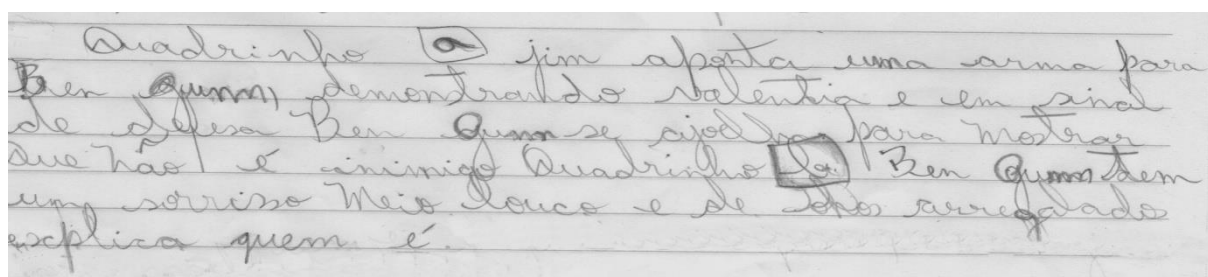 Quadrinho a jim aponta uma arma para
Ben Gunn, demonstrando valentia e em sinal
de defesa Ben Gunn se ajoelha para mostrar
que não é inimigo Quadrinho b. Ben Gunn tem
um sorriso meio louco e de olhos arregalados
explica quem é.